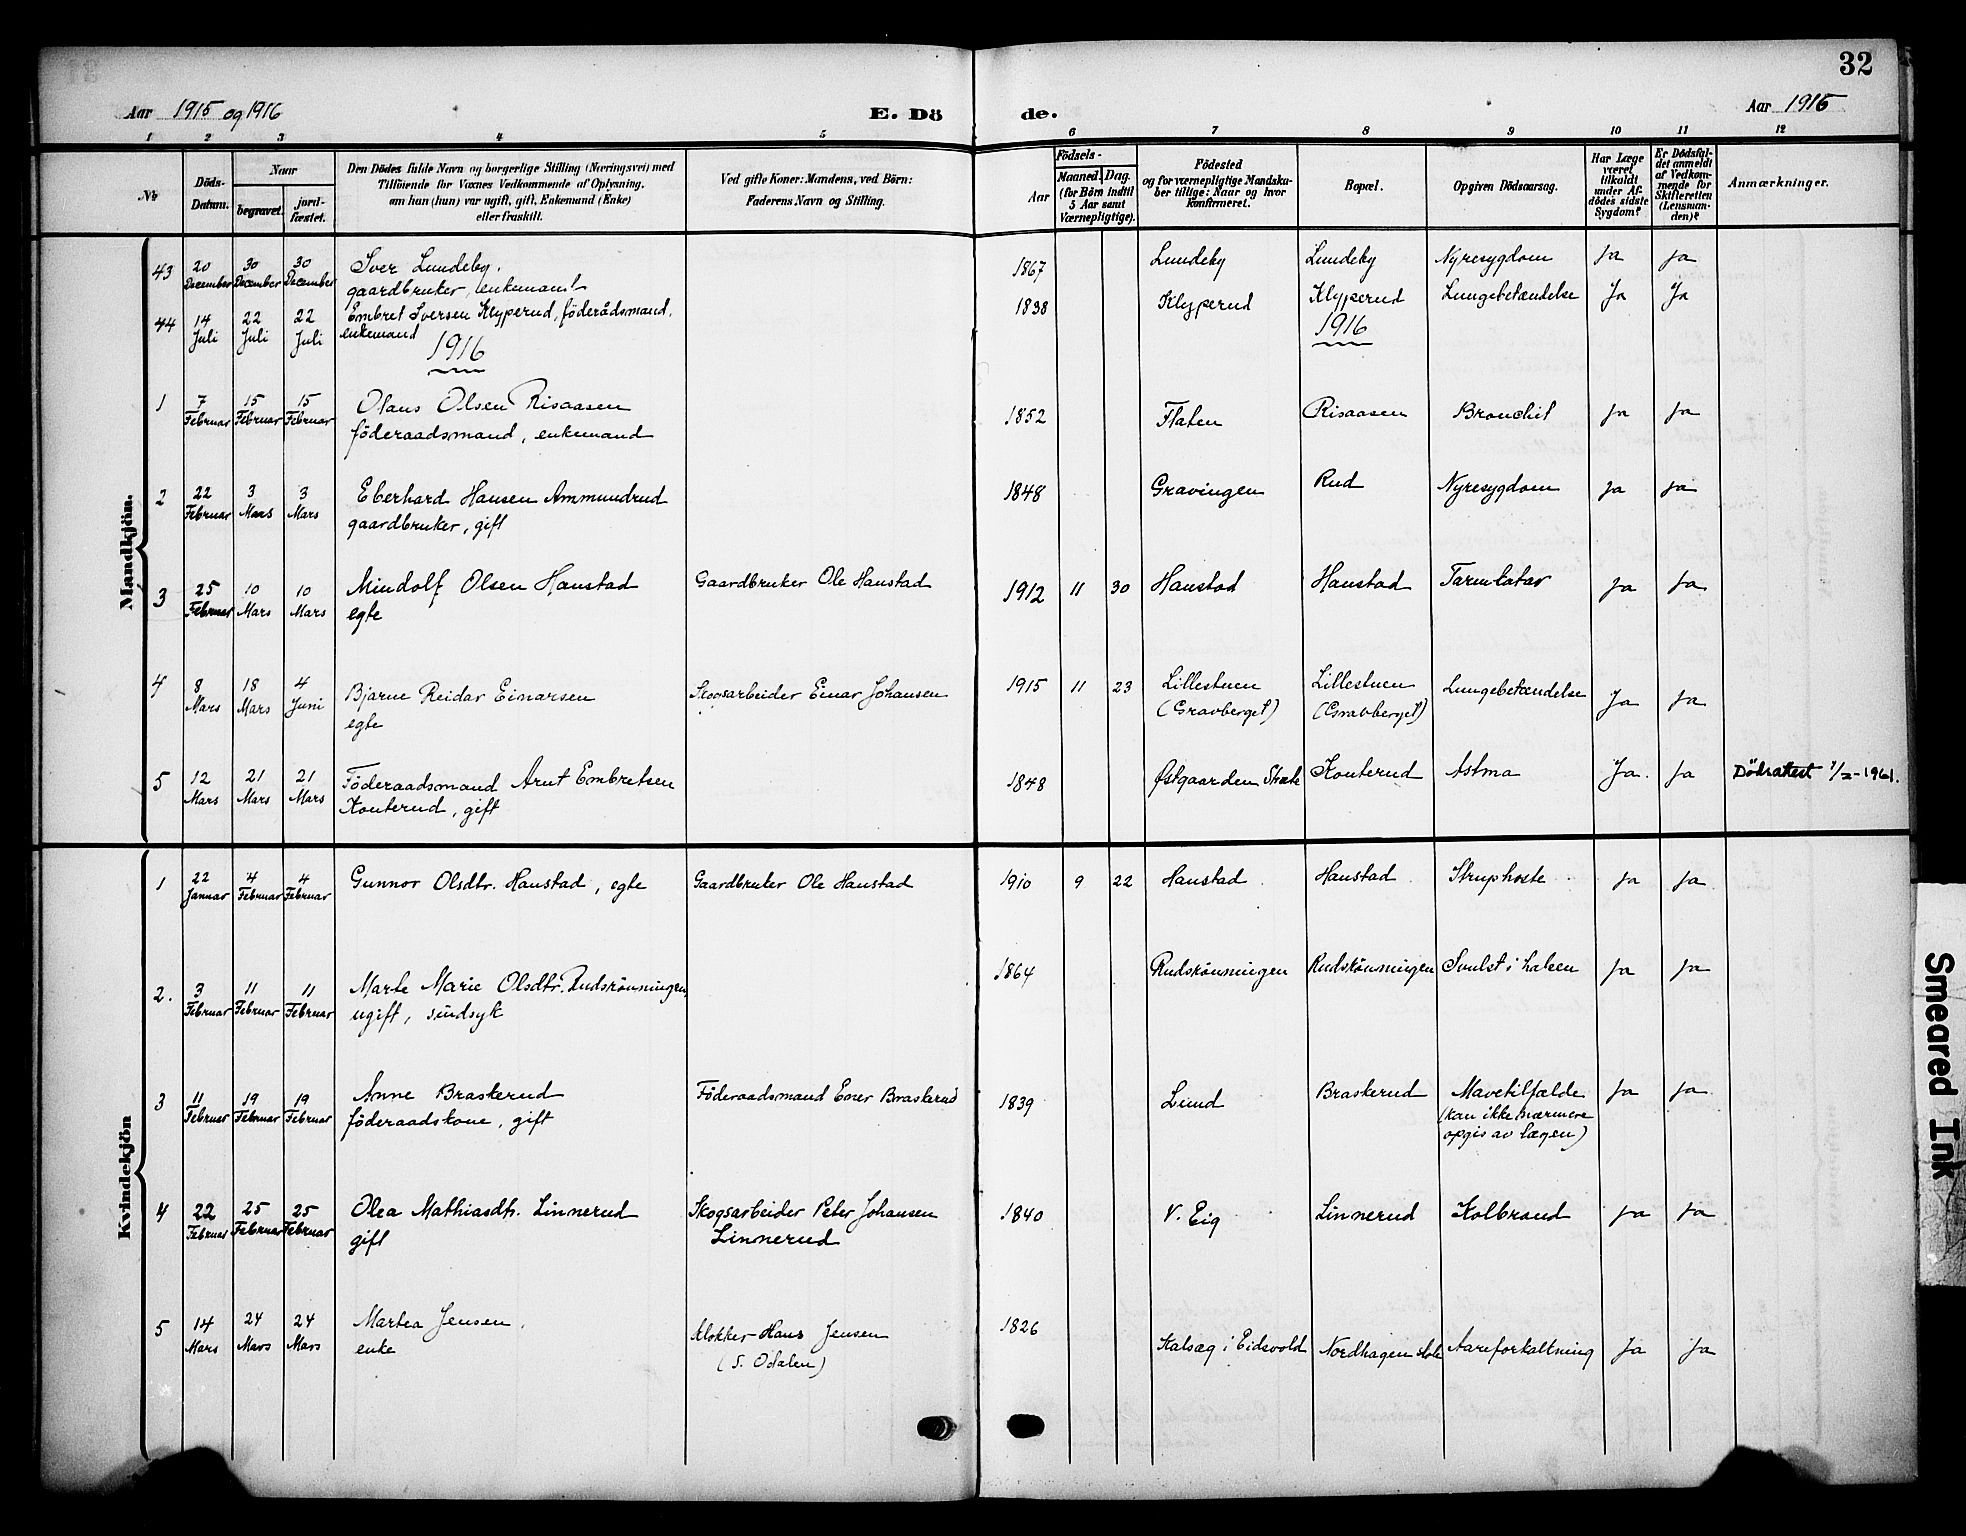 32
Aar 1915 og 1916
E. Dö
de.
Aar 1915
1 2 3 4 5 6 7 8 9 10 11 12
No
Döds-
Datum.
Naar
begravet.
jord-
fæstet.
Den Dödes fulde Navn og borgerlige Stilling (Næringsvei) med
Tilföiende for Voxnes Vedkommende af Oplysning,
om han (hun) var ugift, gift, Enkemand (Enke)
eller fraskilt.
Ved gifte Koner: Mandens, ved Börn:
Faderens Navn og Stilling.
Födsels-
Aar
Maaned. Dag.
(for Börn indtil
5 Aar samt
Værnepligtige).
Födested
og for værnepligtige Mandska-
ber tillige: Naar og hvor
konfirmeret.
Bopæl.
Opgiven Dödsaarsag.
Har Læge
været
tilkaldt
under Af-
dödes sidste
Sygdom?
Er Dödsfal-
det anmeldt
af Vedkom-
mende for
Skifteretten
(Lensman-
den)?
Anmærkninger.
Mandkjön.
43 20 December 30 December 30 December Iver Lundeby, 1867 Lundeby Lundeby Nyresygdom Ja Ja
gaardbruker, enkemand
44 14 Juli 22 Juli 22 Juli Embret Iversen Klyperud, föderådsmand, 1838 Klyperud Klyperud Lungebetændelse Ja Ja
enkemand
1916 1916
1 7 Februar 15 Februar 15 Februar Olaus Olsen Risaasen 1852 Flaten Risaasen Bronchit Ja Ja
föderaadsmand, enkemand
2 22 Februar 3 Mars 3 Mars Eberhard Hansen Ammundrud 1848 Gravingen Rud Nyresygdom Ja Ja
gaardbruker, gift
3 25 Februar 10 Mars 10 Mars Mindolf Olsen Hanstad Gaardbruker Ole Hanstad 1912 11 30 Hanstad Hanstad Tarmkatar Ja Ja
egte
4 8 Mars 18 Mars 4 Juni Bjarne Reidar Einarsen Skogsarbeider Einar Johansen 1915 11 23 Lillestuen Lillestuen Lungebetændelse Ja Ja
egte (Gravberget) (Gravberget)
5 12 Mars 21 Mars 21 Mars Föderaadsmand Arnt Embretsen 1848 Østgaarden Konterud Astma Ja. Ja Dödsattest 1/2-1961.
Konterud, gift
Kvindekjön
1 22 Januar 4 Februar 4 Februar Gunnor Olsdtr. Hanstad, egte Gaardbruker Ole Hanstad 1910 9 22 Hanstad Hanstad Struphoste Ja Ja
2. 3 Februar 11 Februar 11 Februar Marte Marie Olsdtr. Rudskönningen, 1864 Rudskönningen Rudskönningen Svulst i halsen Ja Ja
ugift, sindsyk
3 11 Februar 19 Februar 19 Februar Anne Braskerud Föderaadsmand Ener Braskerud 1839 Lund Braskerud Mavetilfælde Ja Ja
föderaadskone, gift (kan ikke nærmere
opgis av lægen)
4 22 Februar 25 Februar 25 Februar Olea Mathiasdtr. Linnerud Skogsarbeider Peter Johansen 1840 V. Eig Linnerud Kolbrand Ja Ja
gift Linnerud
5 14 Mars 24 Mars 24 Mars Martea Jensen, Klokker Hans Jensen 1826 Kalsæg i Eidsvold Nordhagen Aareforkaltning Ja Ja
enke (S. Odalen)
Smeared Ink